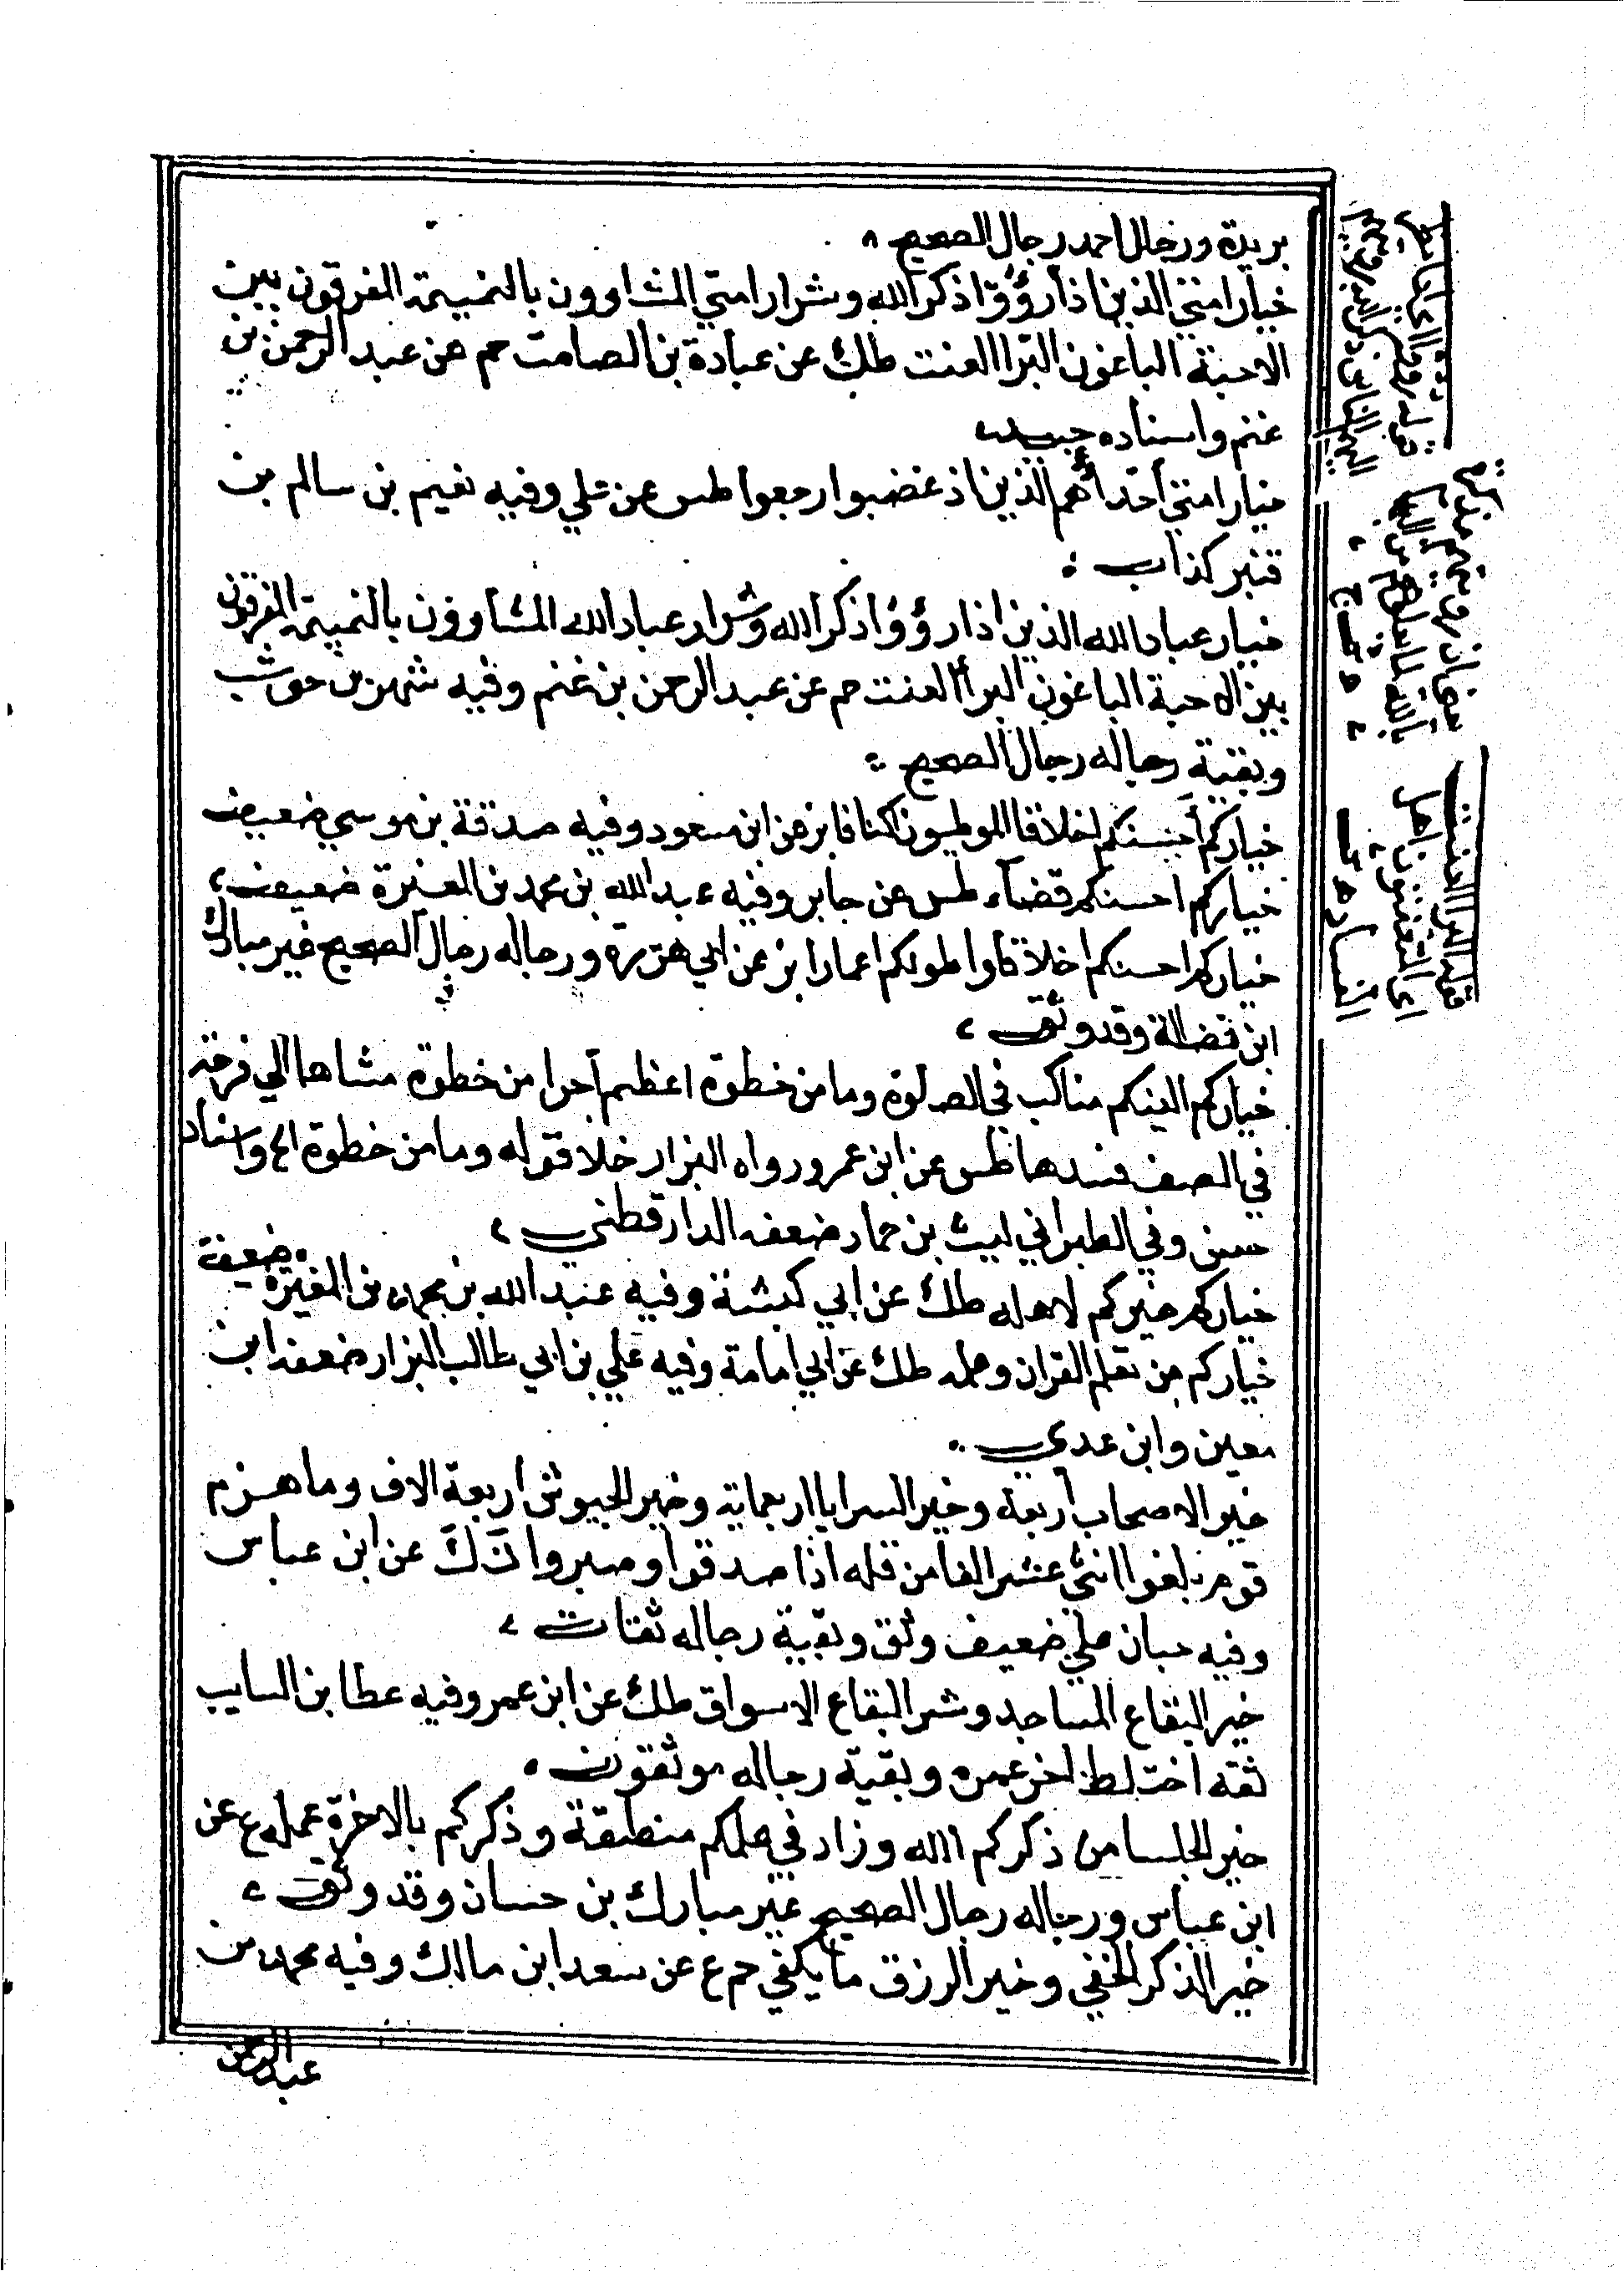 بريدة ورجال احمد رجال الصحيح
خيار امتي الذين اذا رؤوا ذكر الله وشرار امتي المشاوون بالنميمة المفرقون بين
الاحبة الباغون البرا العنت طك عن عبادة بن الصامت حم عن عبد الرحمن بن
غنم واسناده جيد
خيار امتي أحدأهم الذين اذ غضبوا رجعوا طس عن علي وفيه نعيم بن سالم بن
قنبر كذاب
خيار عباد الله الذين اذا رؤوا ذكر الله وشرار عباد الله المشاوون بالنميمة المفرقون
بين الاحبة الباغون البرأ العنت حم عن عبد الرحمن بن غنم وفيه شهر بن حوشب
وبقية رجاله رجال الصحيح
خياركم أحسنكم اخلاقا الموطيون اكنافا بز عن ابن مسعود وفيه صدقة بن موسي ضعيف
خياركم احسنكم قضاء طس عن جابر وفيه عبد الله بن محمد بن المغيرة ضعيف
خياركم احسنكم اخلاقا واطولكم اعمارا بز عن ابي هريرة ورجاله رجال الصحيح غير مبارك
ابن فضالة وقد وثق
خياركم الينكم مناكب في الصلوة وما من خطوة اعظم أجرا من خطوة مشاها الي فرجة
في الصف فسدها طس عن ابن عمر ورواه البزار خلا قوله وما من خطوة الخ واسناد
حسن وفي الطبراني ليث بن حماد ضعفه الدارقطني
خياركم خيركم لاهله طك عن ابي كبشة وفيه عبد الله بن محمد بن المغيرة ضعيف
خياركم من تعلم القران وعلمه طك عن ابي امامة وفيه علي بن ابي طالب البزار ضعفه ابن
معين وابن عدي
خير الاصحاب أربعة وخير السرايا اربعماية وخير الجيوش أربعة الاف وما هزم
قوم بلغوا اثني عشر الفا من قلة اذا صدقوا وصبروا عن ابن عباس
وفيه حبان علي ضعيف وثق وبقية رجاله ثقات
خير البقاع المساجد وشر البقاع الاسواق طك عن ابن عمر وفيه عطا بن السايب
ثقه اختلط اخر عمره وبقية رجاله موثقون
خير الجلسا من ذكركم الله وزاد في علمكم منطقة وذكركم بالاخرة عمله ع عن
ابن عباس ورجاله رجال الصحيح غير مبارك بن حسان وقد وثق
خير الذكر الخفي وخير الرزق ما يكفي حم ع عن سعد ابن مالك وفيه محمد بن
عبد الرحمن
قوله البرا العنت
اى